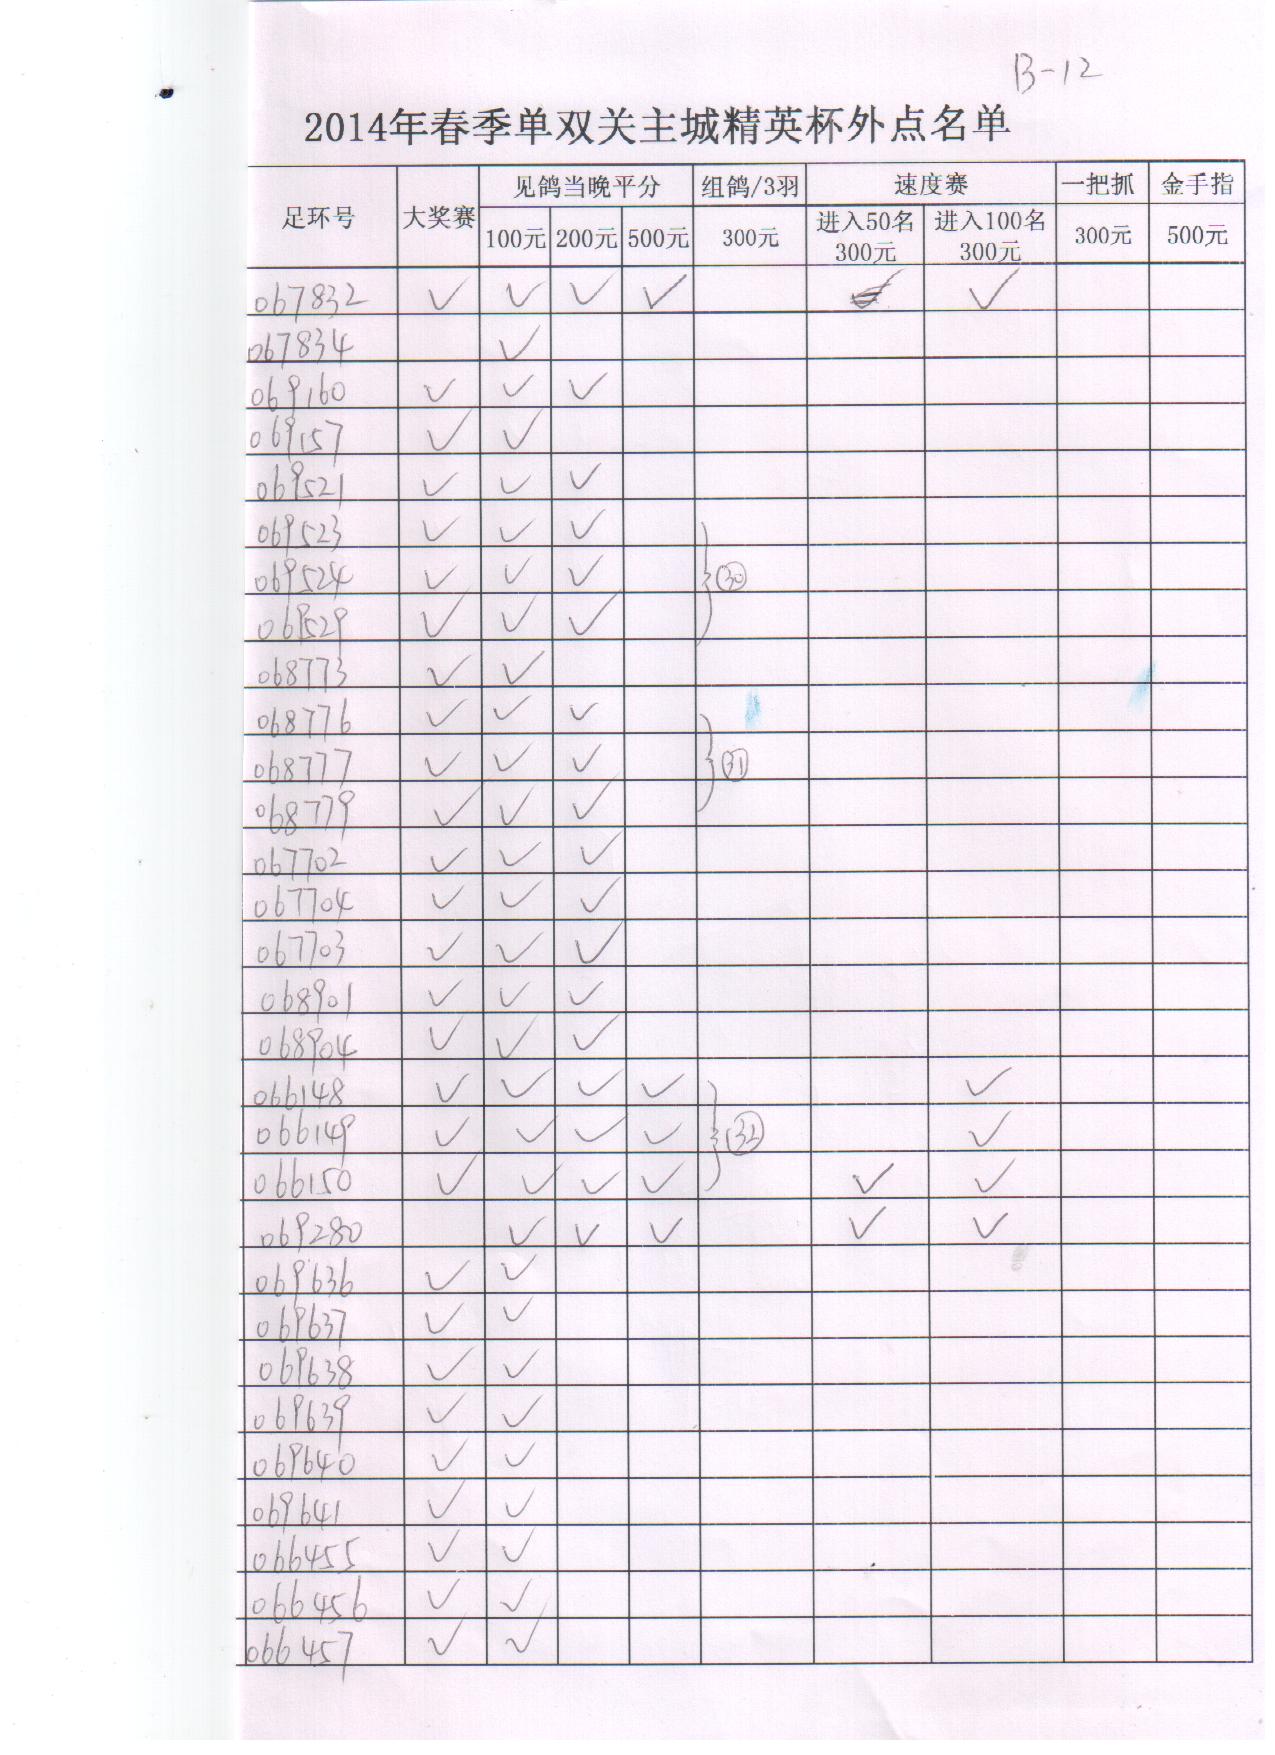 B-12
2014年春季单双关主城精英杯外点名单
足环号 大奖赛 见鸽当晚平分 组鸽/3羽 速度赛 一把抓 金手指
100元 200元 500元 300元 进入50名 300元 进入100名 300元 300元 500元
067832 ✓ ✓ ✓ ✓ ✓
067834 ✓
069160 ✓ ✓ ✓
069157 ✓ ✓
069521 ✓ ✓ ✓
069523 ✓ ✓ ✓
069524 ✓ ✓ ✓ ㉚
069529 ✓ ✓ ✓
068773 ✓ ✓
068776 ✓ ✓ ✓
068777 ✓ ✓ ✓ ㉛
068779 ✓ ✓ ✓
067702 ✓ ✓ ✓
067704 ✓ ✓ ✓
067703 ✓ ✓ ✓
068901 ✓ ✓ ✓
068904 ✓ ✓ ✓
066148 ✓ ✓ ✓ ✓ ✓
066149 ✓ ✓ ✓ ✓ ㉜ ✓
066150 ✓ ✓ ✓ ✓ ✓ ✓
069280 ✓ ✓ ✓ ✓ ✓
069636 ✓ ✓
069637 ✓ ✓
069638 ✓ ✓
069639 ✓ ✓
069640 ✓ ✓
069641 ✓ ✓
066455 ✓ ✓
066456 ✓ ✓
066457 ✓ ✓